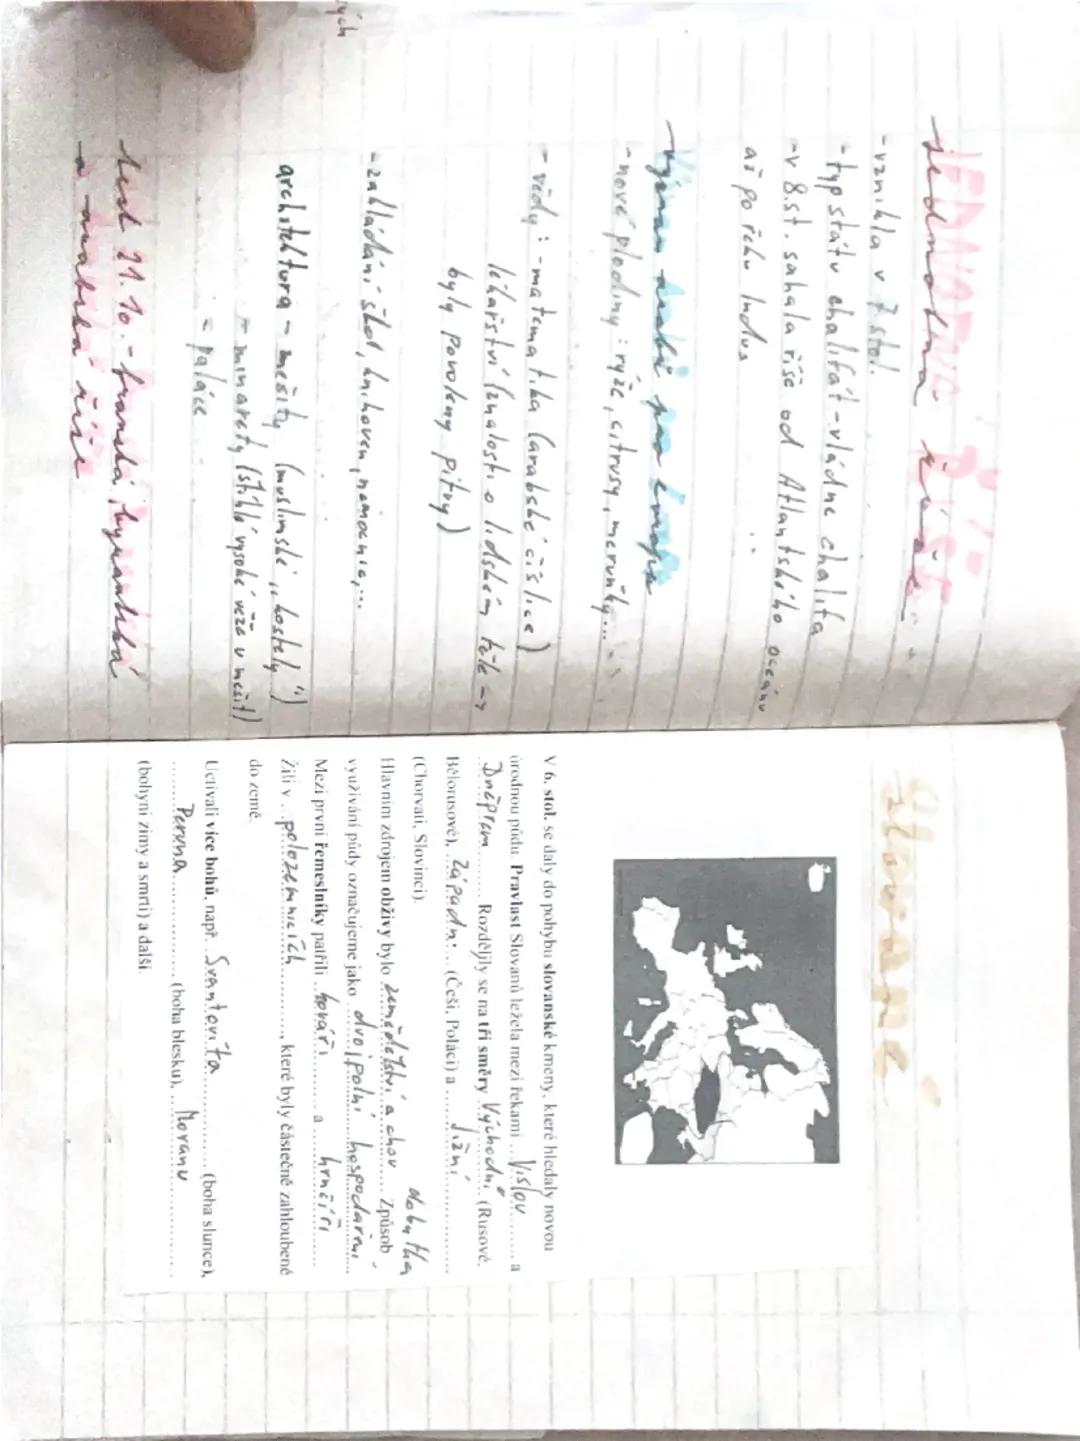 jednotná říše
- vznikla v 7. stol.
- typ státu chalífát - vládne chalífa
- v 8. st. sahala říše od Atlantského oceánu
až po řeku Indus
význam arabů pro Evropu
- nové plodiny: rýže, citrusy, meruňky...
- vědy: - matematika (arabské číslice)
lékařství (znalosti o lidském těle →
byly povoleny pitvy)
- zakládání škol, knihoven, nemocnic,...
architektura - mešity (muslimské „kostely")
- minarety (štíhlé vysoké věže u mešit)
- paláce
test 21. 10. - franská, byzantská
a arabská říše
ných
Slované
V 6. stol. se daly do pohybu slovanské kmeny, které hledaly novou
úrodnou půdu. Pravlast Slovanů ležela mezi řekami ...Vislou........ a
Dněprem........ Rozdělily se na tři směry Východní. (Rusové,
Bělorusové), Západní... (Češi, Poláci) a ....Jižní..............
(Chorvati, Slovinci).
dobytka
Hlavním zdrojem obživy bylo zemědělství a chov.... Způsob
využívání půdy označujeme jako dvojpolní hospodaření
Mezi první řemeslníky patřili ..kováři......... a ....hrnčíři......
Žili v ..polozemnicích..........., které byly částečně zahloubené
do země.
Uctívali více bohů, např. Svantovíta.............. (boha slunce),
.......Peruna................ (boha blesku), ...Moranu..............
(bohyni zimy a smrti) a další.